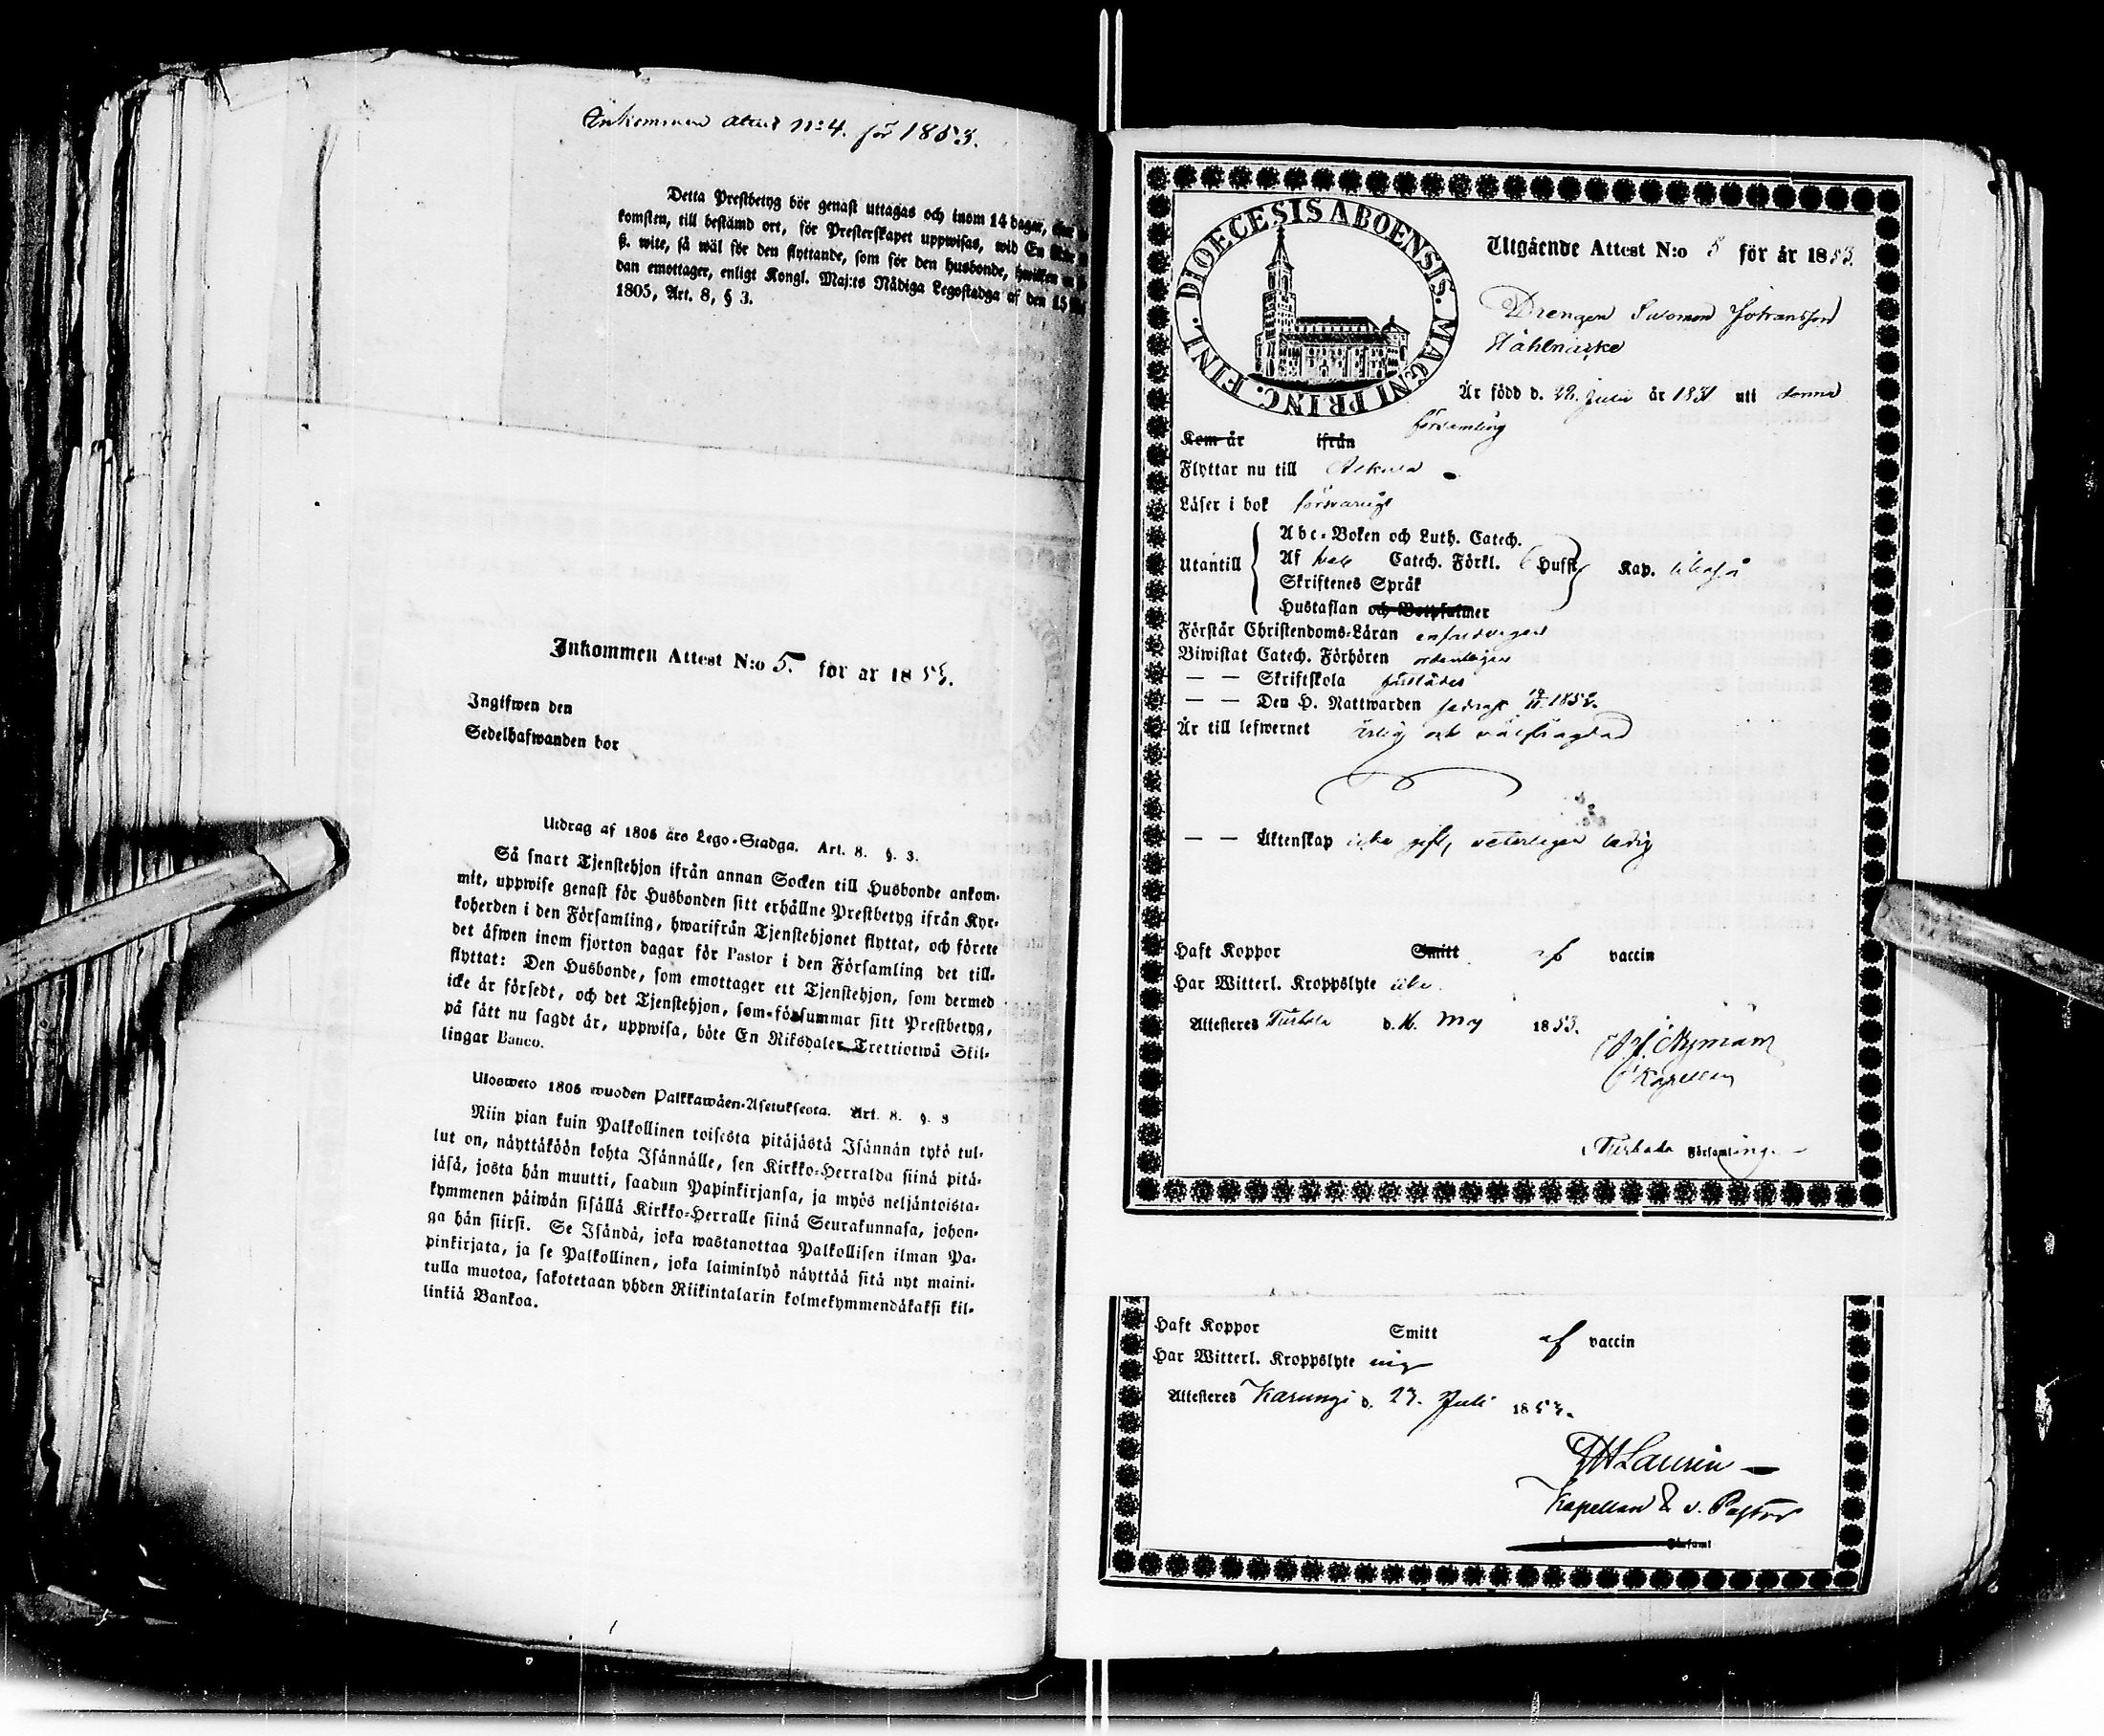 Inkommen attest No 4. för 1853.
Detta Prestbetyg bör genast uttagas och inom 14 dagar,
komsten, till bestämd ort, för Presterskapet uppwisas, wid En
ß. wite, så wäl för den flyttande, som för den husbonde, hwilken
dan emottager, enligt Kongl. Maj:ts Nådiga Legostadga af den 15
1805, Art. 8, § 3.
Inkommen Attest N:o 5. för år 1853.
Ingifwen den
Sedelhafwanden bor
Utdrag af 1805 års Lego-Stadga. Art. 8. §. 3.
Så snart Tjenstehjon ifrån annan Socken till Husbonde ankom-
mit, uppwise genast för Husbonden sitt erhållne Prestbetyg ifrån Kyr-
koherden i den Församling, hwarifrån Tjenstehjonet flyttat, och förete
det äfwen inom fjorton dagar för Pastor i den Församling det till-
flyttat: Den Husbonde, som emottager ett Tjenstehjon, som dermed
icke är försedt, och det Tjenstehjon, som försummar sitt Prestbetyg,
på sätt nu sagdt är, uppwisa, böte En Riksdaler Trettiotwå Skil-
lingar Banco.
Ulosweto 1805 wuoden Palkkawäen-Asetuksesta. Art. 8. §. 3
Niin pian kuin Palkollinen toisesta pitäjästä Isännän tykö tul-
lut on, näyttäköön kohta Isännälle, sen Kirkko-Herralda siinä pitä-
jäsä, josta hän muutti, saadun Papinkirjansa, ja myös neljäntoista-
kymmenen päiwän sisällä Kirkko-Herralle siinä Seurakunnasa, johon-
ga hän siirsi. Se Isändä, joka wastanottaa Palkollisen ilman Pa-
pinkirjata, ja se Palkollinen, joka laiminlyö näyttää sitä nyt maini-
tulla muotoa, sakotetaan yhden Riikintalarin kolmekymmendäkaksi kil-
linkiä Bankoa.
DIOECESIS ABOENSIS. MAGNI PRINC. FINL.
Utgående Attest N:o 5 för år 1853.
Drengen Salomon Johansson
Är född d. 22. Juli år 1831 uti denna
församling
Kom år ifrån
Flyttar nu till
Läser i bok försvarligt
Abc-Boken och Luth. Catech.
Utantill Af hela Catech. Förkl. 6 Hufst. Kap. likaså
Skriftenes Språk
Hustaflan och Botpsalmer
Förstår Christendoms-Läran enfaldigen
Biwistat Catech. Förhören ordentligen
— — Skriftskola
— — Den H. Nattwarden sednast 1852.
Är till lefwernet ärlig och välfrägdad
— — Äktenskap icke gift, veterligen ledig
Haft Koppor Smitt af vaccin
Har Witterl. Kroppslyte icke.
Attesteres Turtola d. 16. Maj 1853.
Nyman
Kapellan
Turtola Församling.
Haft Koppor Smitt af vaccin
Har Witterl. Kroppslyte
Attesteres Karungi d. 27. Juli 1853.
Laurin
Kapellan & v. Pastor
Församl